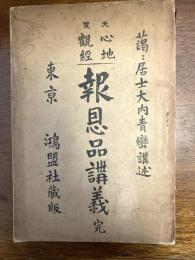 藹々居士大内青巒講述
天覽
心地觀經
報恩品講義 完
東京 鴻盟社藏版